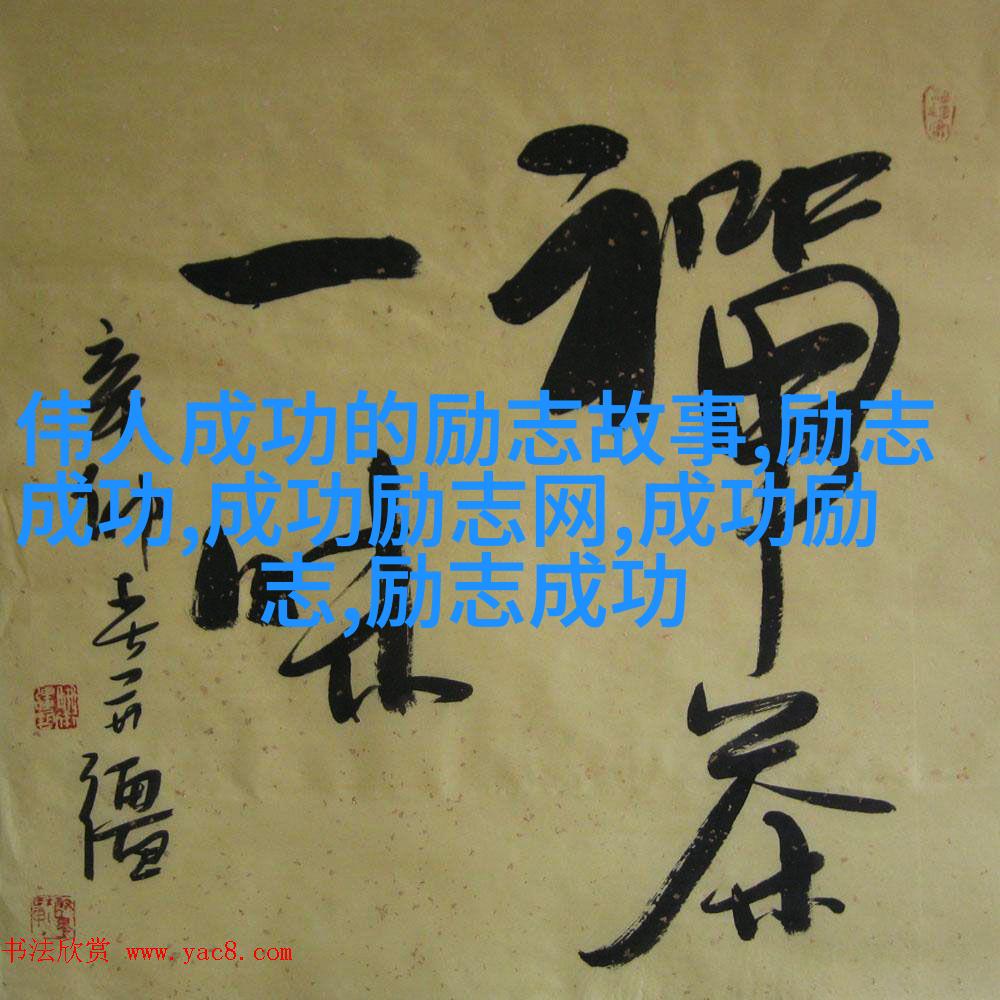 禪茶
一味
伟人成功的励志故事,励志
成功,成功励志网,成功励
志,励志成功
书法欣赏 www.yac8.com